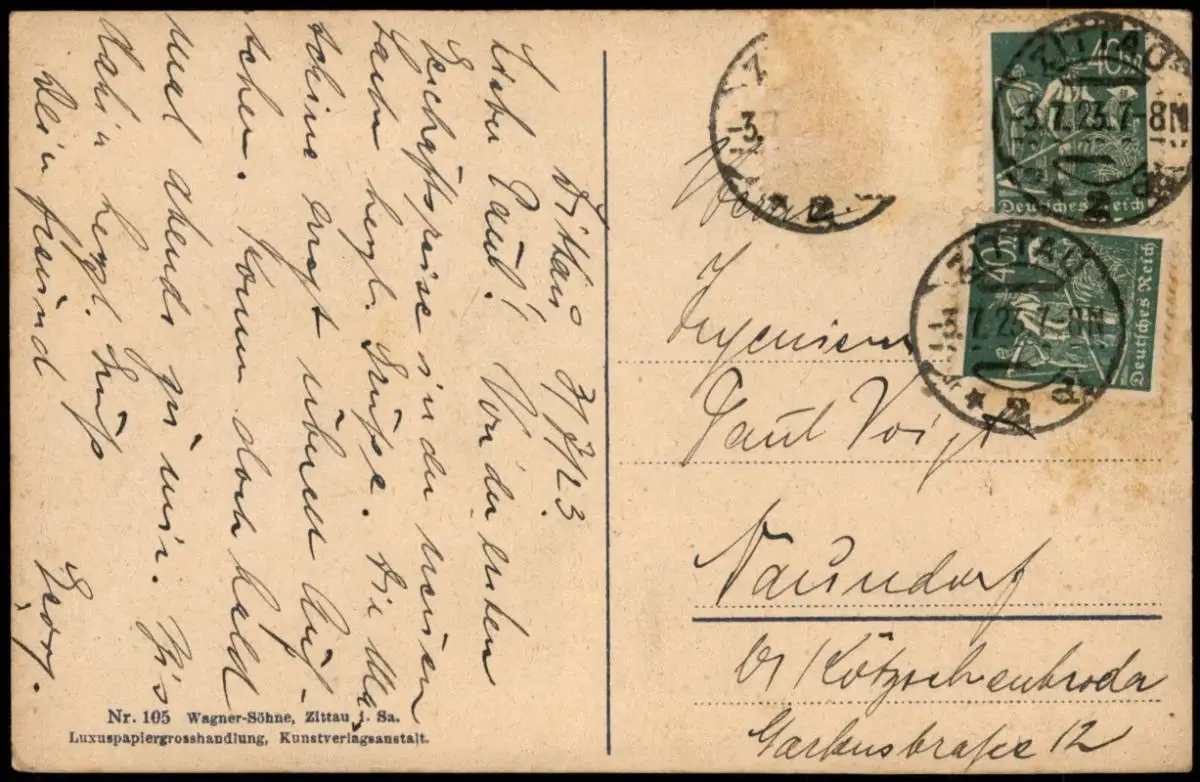 Zittau 3/7/23.
Lieber Paul! Von der ersten
Geschäftsreise in der neuen
herzl. Grüsse. Die Ma
schine
Komm doch bald
mal abends zu mir. Bis
dahin herzl. Gruß
Dein Freund
Georg.
Nr. 105 Wagner-Söhne, Zittau i. Sa.
Luxuspapiergrosshandlung, Kunstverlagsanstalt.
Z
-3.
2
ZITTAU
-3.7.23.7-8N
* 2 d
40M
Deutsches Reich
ZITTAU
7.23.7-8N
* 2 d
40
Deutsches Reich
Herrn
Ingenieur
Paul Voigt
Naundorf
b/ Kötzschenbroda
Gartenstraße 12